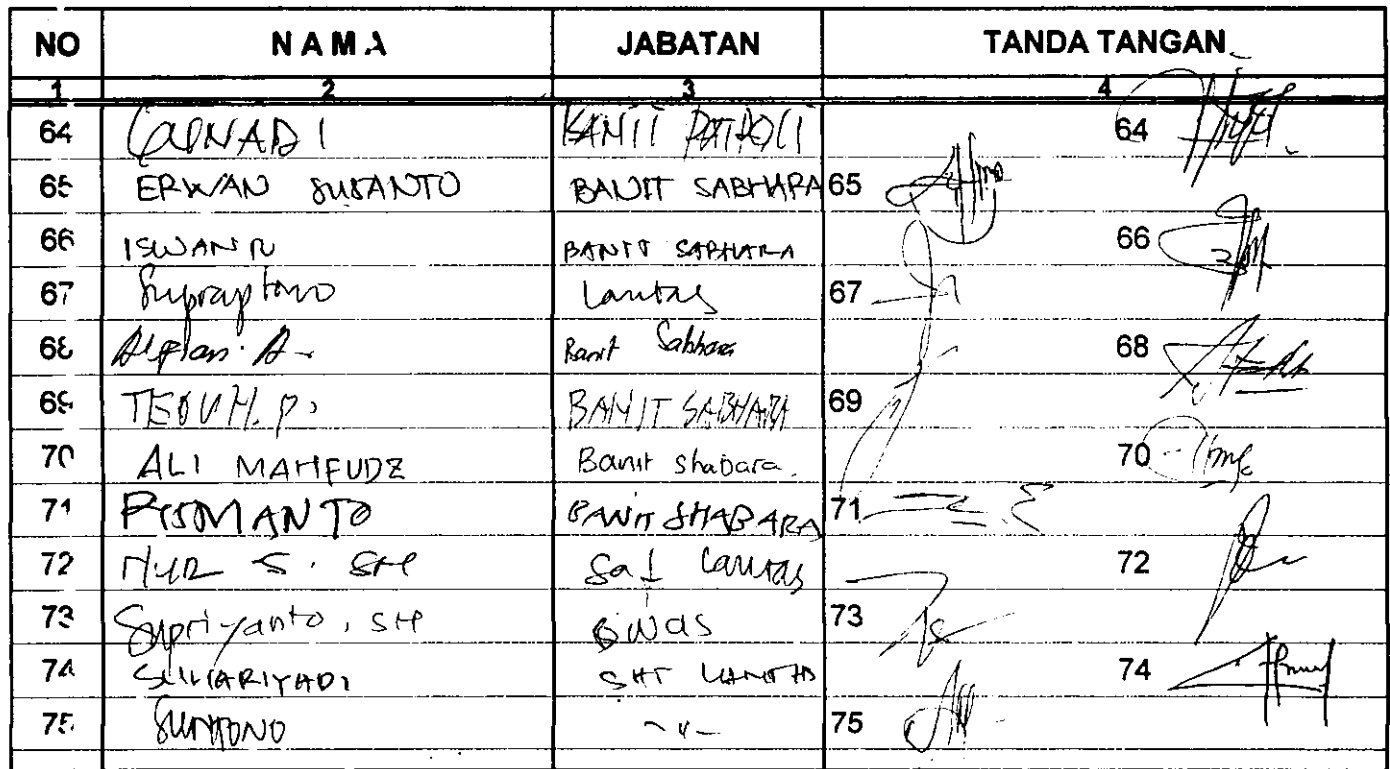 NO NAMA JABATAN TANDA TANGAN
1 2 3 4
64 KANIT PATROLI 64
65 ERWAN SUSANTO BANIT SABHARA 65
66 ISWAN BANIT SABHARA 66
67 Supraptono Lantas 67
68 A. Banit Sabhara 68
69 TEGUH. P. BANIT SABHARA 69
70 ALI MAHFUDZ Banit shabara. 70
71 RISMANTO BANIT SHABARA 71
72 NUR S. SH Sat Lantas 72
73 Supriyanto, SH BINAS 73
74 SAT LANTAS 74
75 75